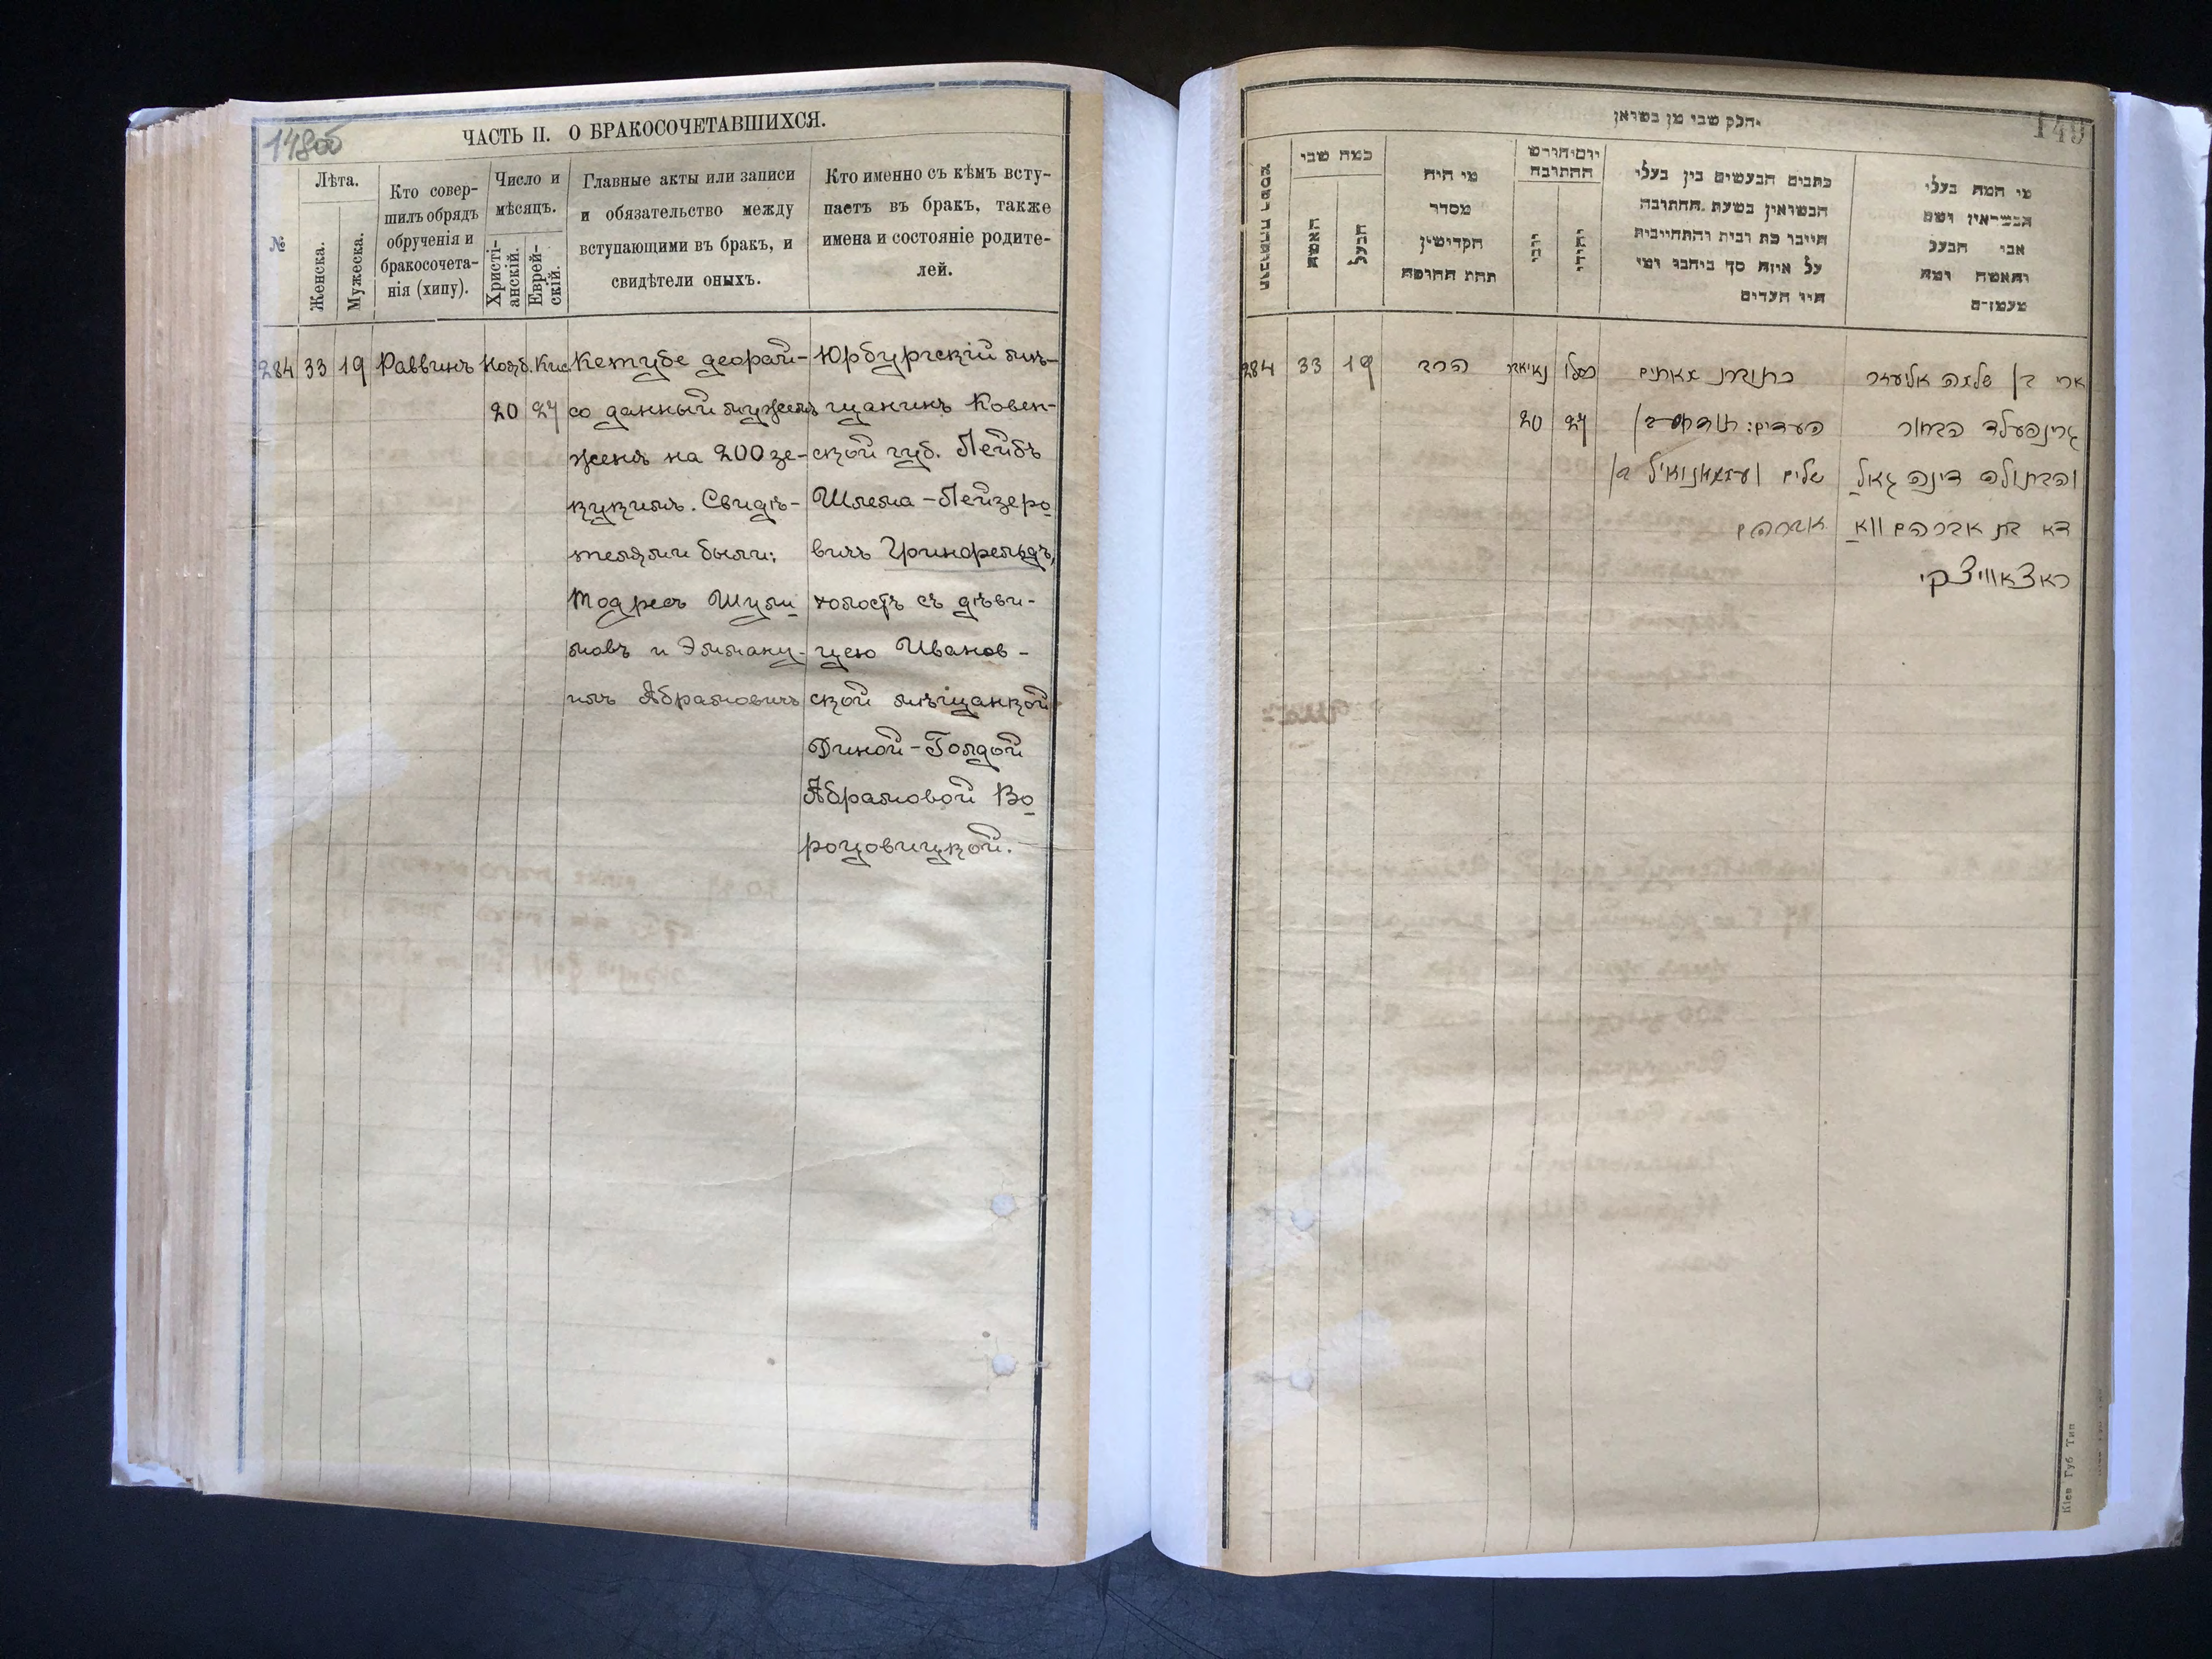 148об
ЧАСТЬ II. О БРАКОСОЧЕТАВШИХСЯ.
№
Лѣта.
Женска.
Мужеска.
Кто совер-
шилъ обрядъ
обрученія и
бракосочета-
нія (хипу).
Число и
мѣсяцъ.
Христі-
анскій.
Еврей-
скій.
Главные акты или записи
и обязательство между
вступающими въ бракъ, и
свидѣтели оныхъ.
Кто именно съ кѣмъ всту-
паетъ въ бракъ, также
имена и состояніе родите-
лей.
284 33 19 Раввинъ Нояб. Кис.
20 27
Кетубе деорай-
со данный мужемъ
женѣ на 200 зе-
кукимъ. Свидѣ-
телями были:
Тодресъ Шули
мовъ и Эмману-
илъ Абрамовичъ
Юрбургскій мѣ-
щанинъ Ковен-
ской губ. Лейбъ
Шлема-Лейзеро
вичъ Гринфельдъ,
холостъ съ дѣви-
цею Иванов-
ской мѣщанкой
Диной-Голдой
Абрамовой Во
роцовицкой.
149
חלק שני מן נשואין
כמה שני
האשה
הבעל
מי היה
מסדר
הקדושין
תחת החופה
יום וחודש
החתונה
יהודי
כתבים הנעשים בין בעלי
הנשואין בשעת החתונה
היינו כת ובית והתחייבות
על איזה סך ניתנו ומי
היו העדים
מי המה בעלי
הנשואין ושם
אבי הבעל
והאשה ומה
מעמדם
284 33 19 הרב
20 27
כתובת מאתים
העדים: תודרוס ב|
שלום ועמאנואיל ב|
אברהם
ארי ב| שלמה אליעזר
גרינפעלד הבחור
והבתולה דינה גאל
דא בת אברהם ווא
ראצאוויצקי
Кіев Губ Тип